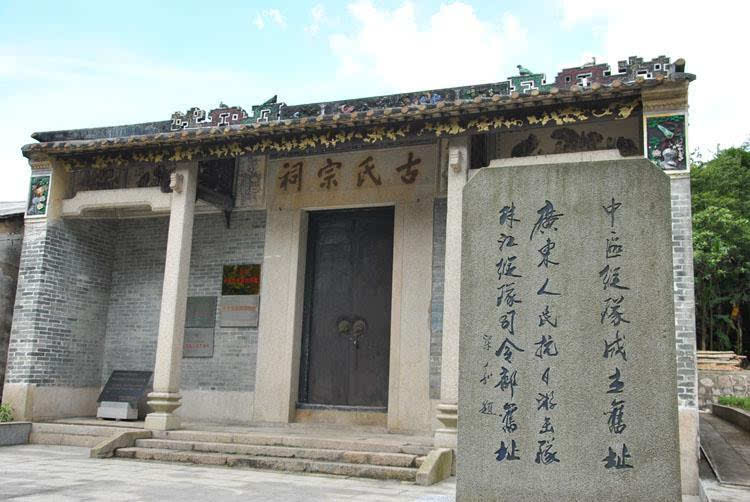 古氏宗祠
中區縱隊成立舊址
廣東人民抗日游击隊
珠江縱隊司令部舊址
梁嘉題